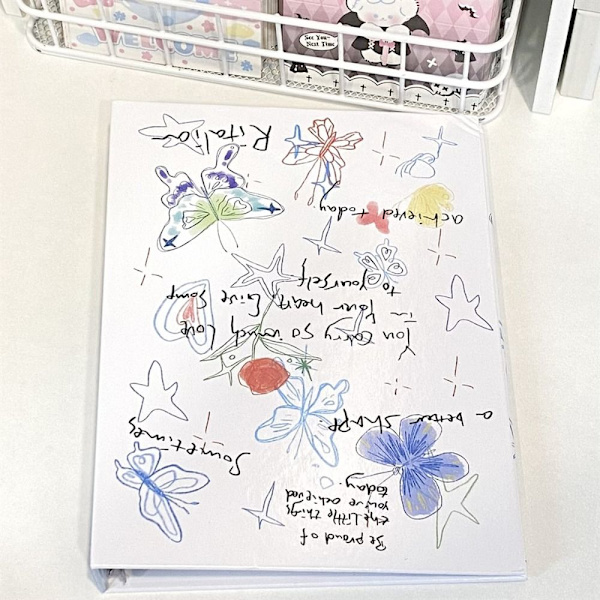 WELCOME
See You~
Next Time
Be proud of
the little things
you've achieved
today.
Sometimes
a better
You carry so much love
in
your heart, Give some
to yourself
achieved today.